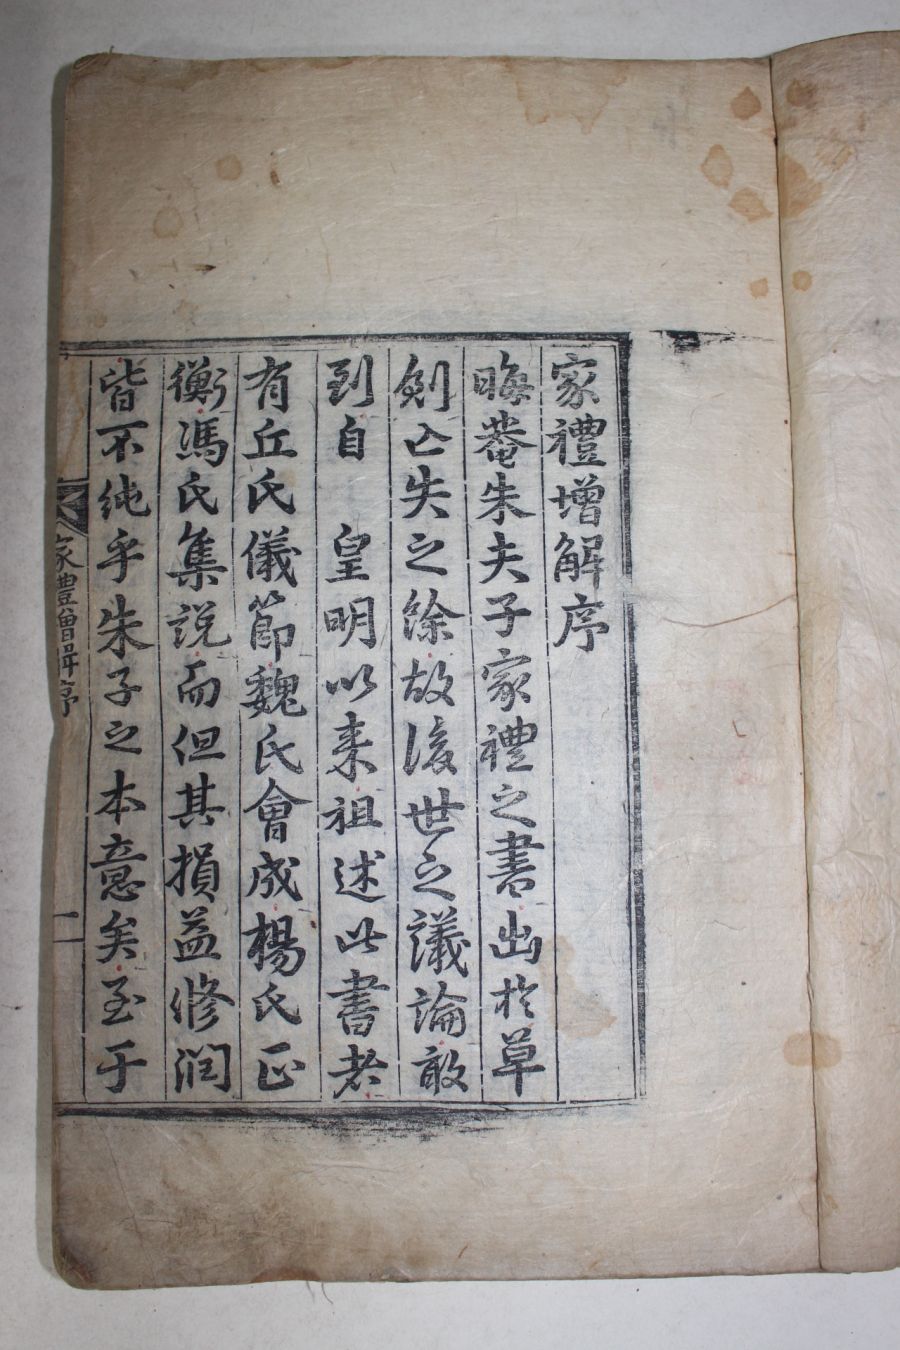 家禮增解序
晦菴朱夫子家禮之書出於草
剏亡失之餘故後世之議論敢
到自 皇明以来祖述此書者
有丘氏儀節魏氏會成楊氏正
衡馮氏集説而但其損益修潤
皆不純乎朱子之本意矣至于
家禮增解序
一